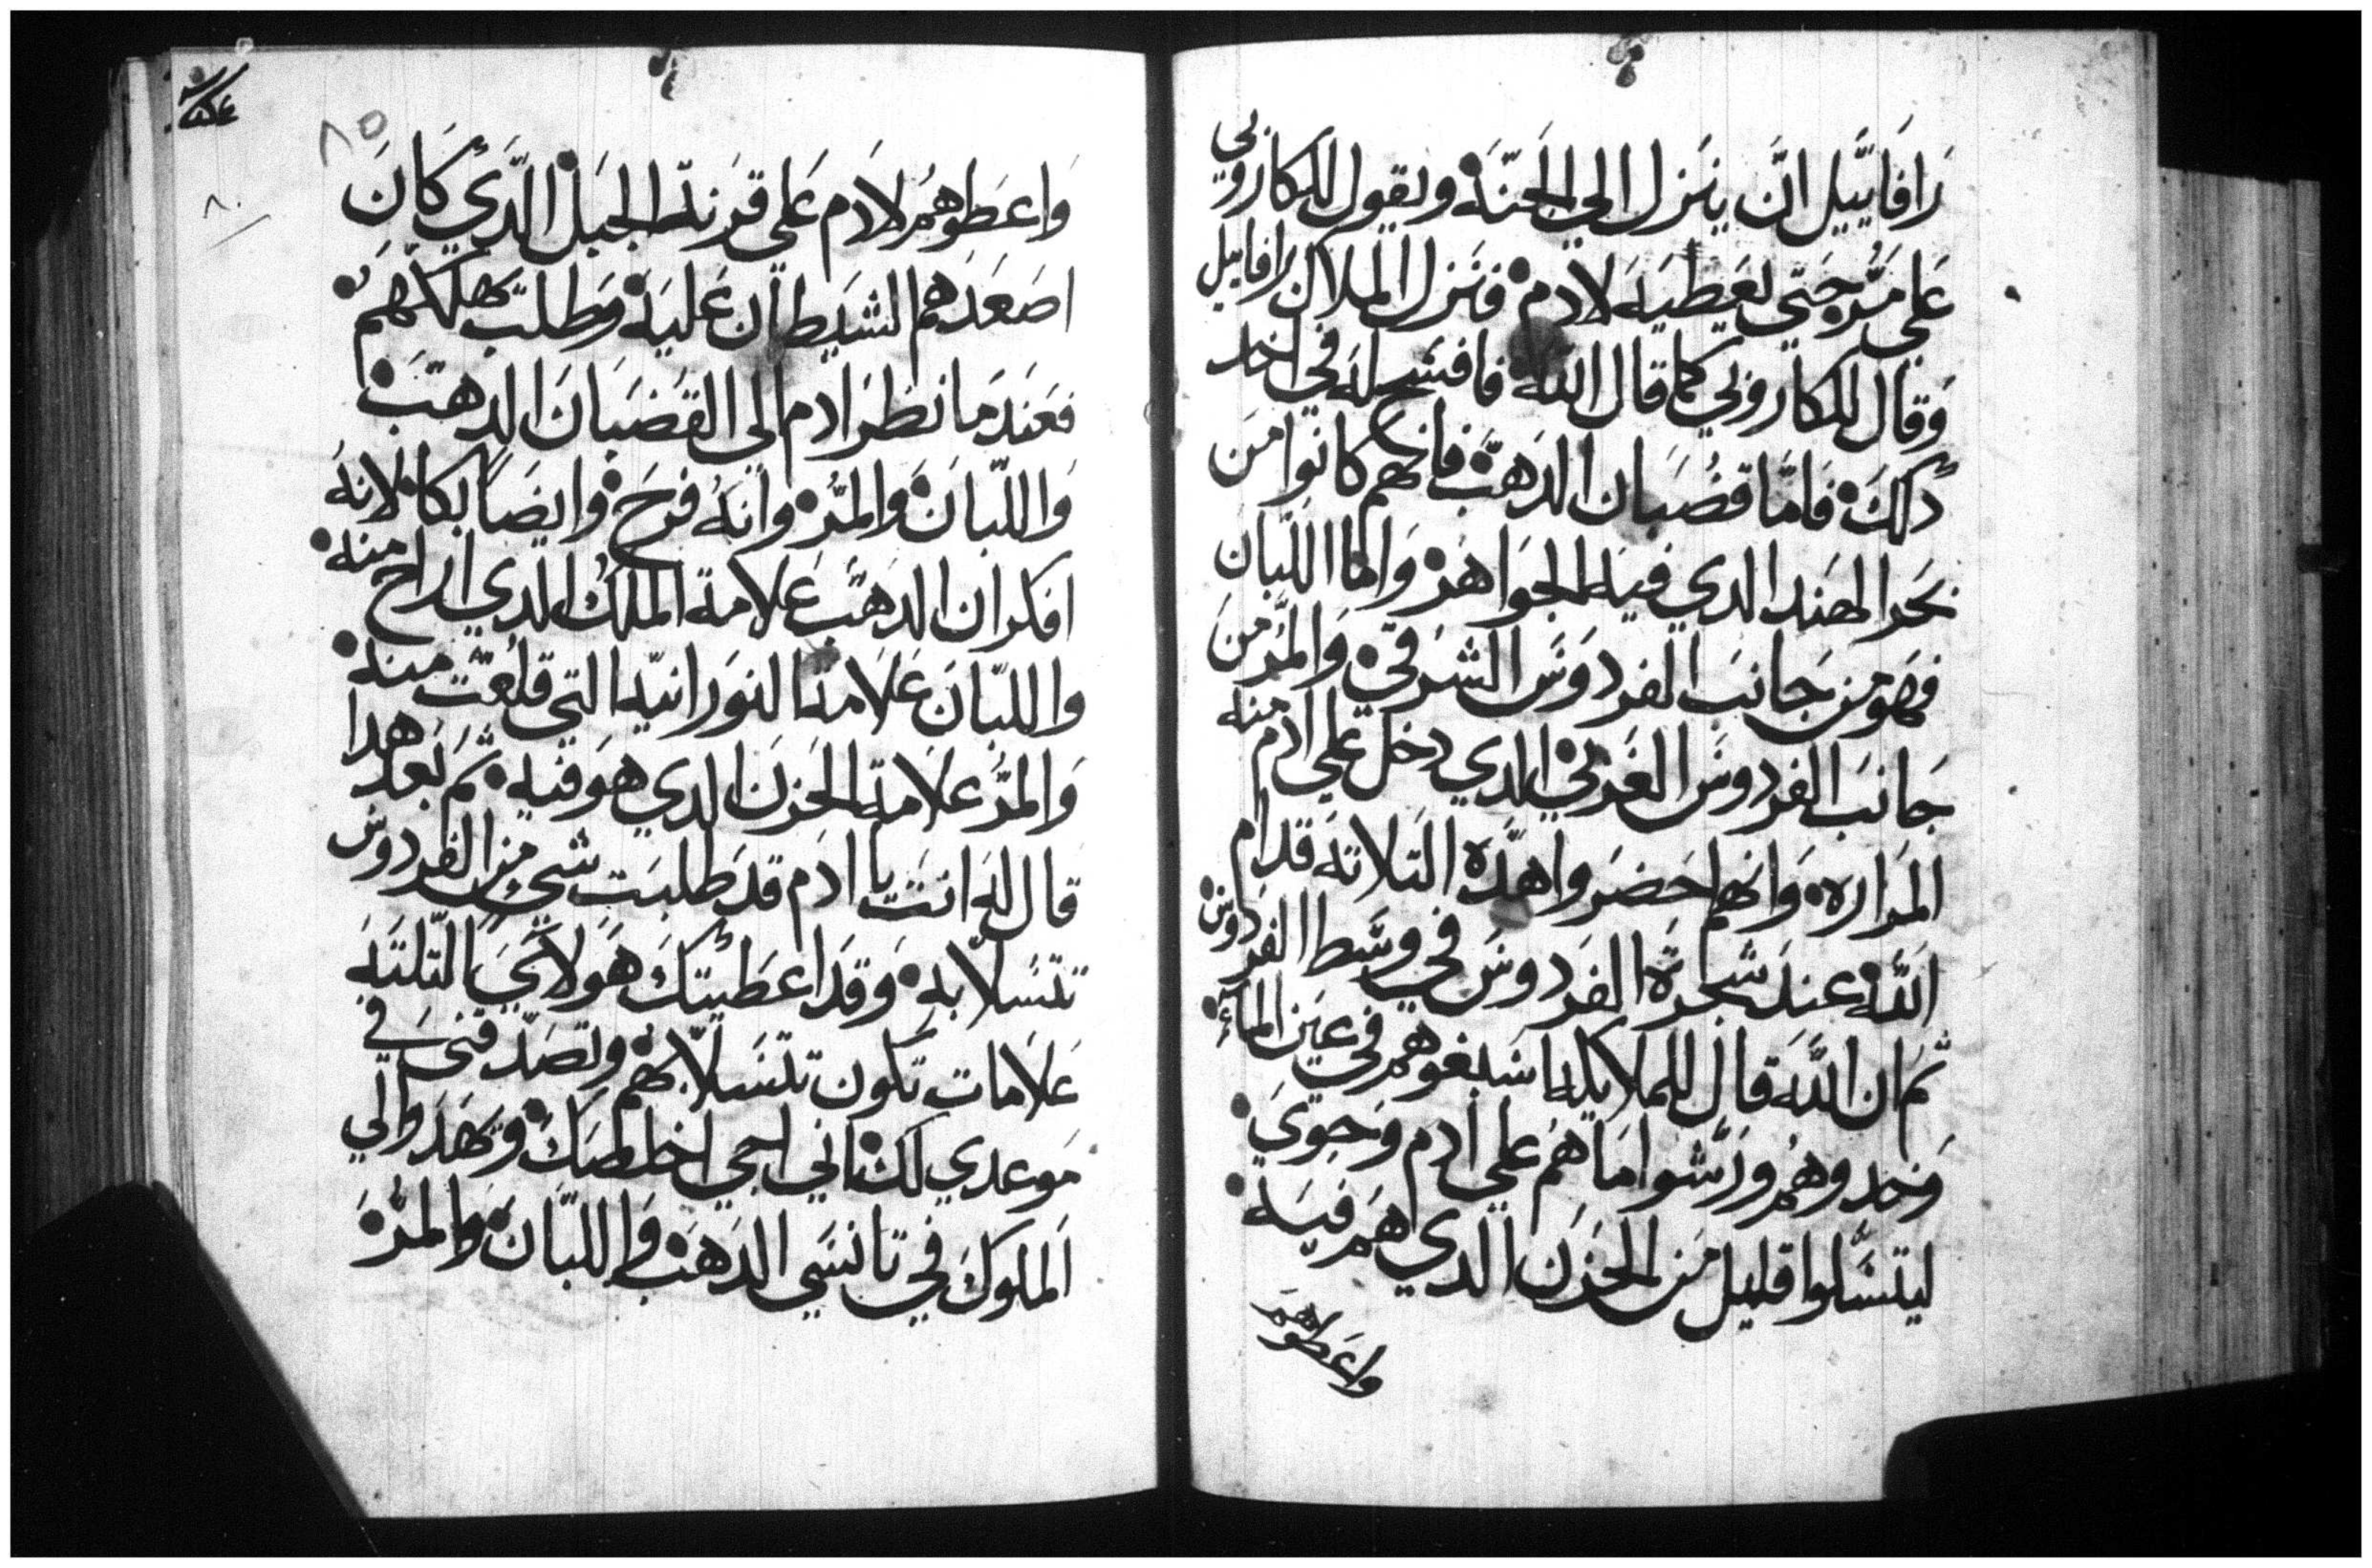 رَافَاييل انَّ ينَزل الي الجَنّةَ ويقول للكاروبي
عَلي مَرّ حَتي يعَطيَه لادم فنَزل الملاك رافاييل
وَقال للكاروبي كما قال اللهَ فافسَح له في اخد
دَلكَ فَامَّا قضُبَان الدَهبَّ فانهم كانوا منَ
بحَر الهنَد الدي فيَه الجوَاهرَ وَاما اللبّان
فهوَ من جَانبَ الفردوَسَ الشرَقيَ وَالمرّ منَ
جَانبَ الفردوسَ الغرَبيَ الدِي دخل علي ادم منه
المرَاره وَانهم احَضرَوا هدَه التلاتة قدام
اللهَ عندَ شجَرةَ الفرَدوسَ في وسَط الفردوسَ
ثم ان اللهَ قال للملايكه اسَبغوهم في عيَن الماء
وَخدوهُم ورَشوا مَاهمَ علي ادم وَحويَ
ليتسَّلوا قليل منَ الحزَن الدي هم فيَه
واعَطوهم
٨٥
٨٠
وَاعطوهمُ لادَم عَلى قرَنة الجبَل الدَّي كانَ
اصَعَدهم الشيَطان عَليَه وَطلبَ هلاكهمَ
فعنَدمَا نظرَ ادم الى القضبَانَ الدهبَ
وَاللبّانَ وَالمرّ وانهَ فرحَ وايضَاً بكا لانهَ
افكر ان الدهبَ عَلامة الملك الدي ازاح منه
واللبّانَ عَلامة النوَرانيّه التي قلعَت منه
وَالمرّ عَلامة الحَزن الدي هوَ فيه ثمَ بعدَ هدا
قال لهَ انتَ يا ادَم قدَ طلبتَ شي منَ الفردوس
تتسَلا بهَ وَقدَ اعَطيتكَ هَولاَيَ التلتة
عَلامَات تكون تتسَلاّ بهم وَتصَدّقنيَ في
موَعدي لكَ اني اجي اخلصَكَ وَتهَدوا لي
اَلملوكَ في تانسَي الدَهبَ وَاللبّان وَالمرّ